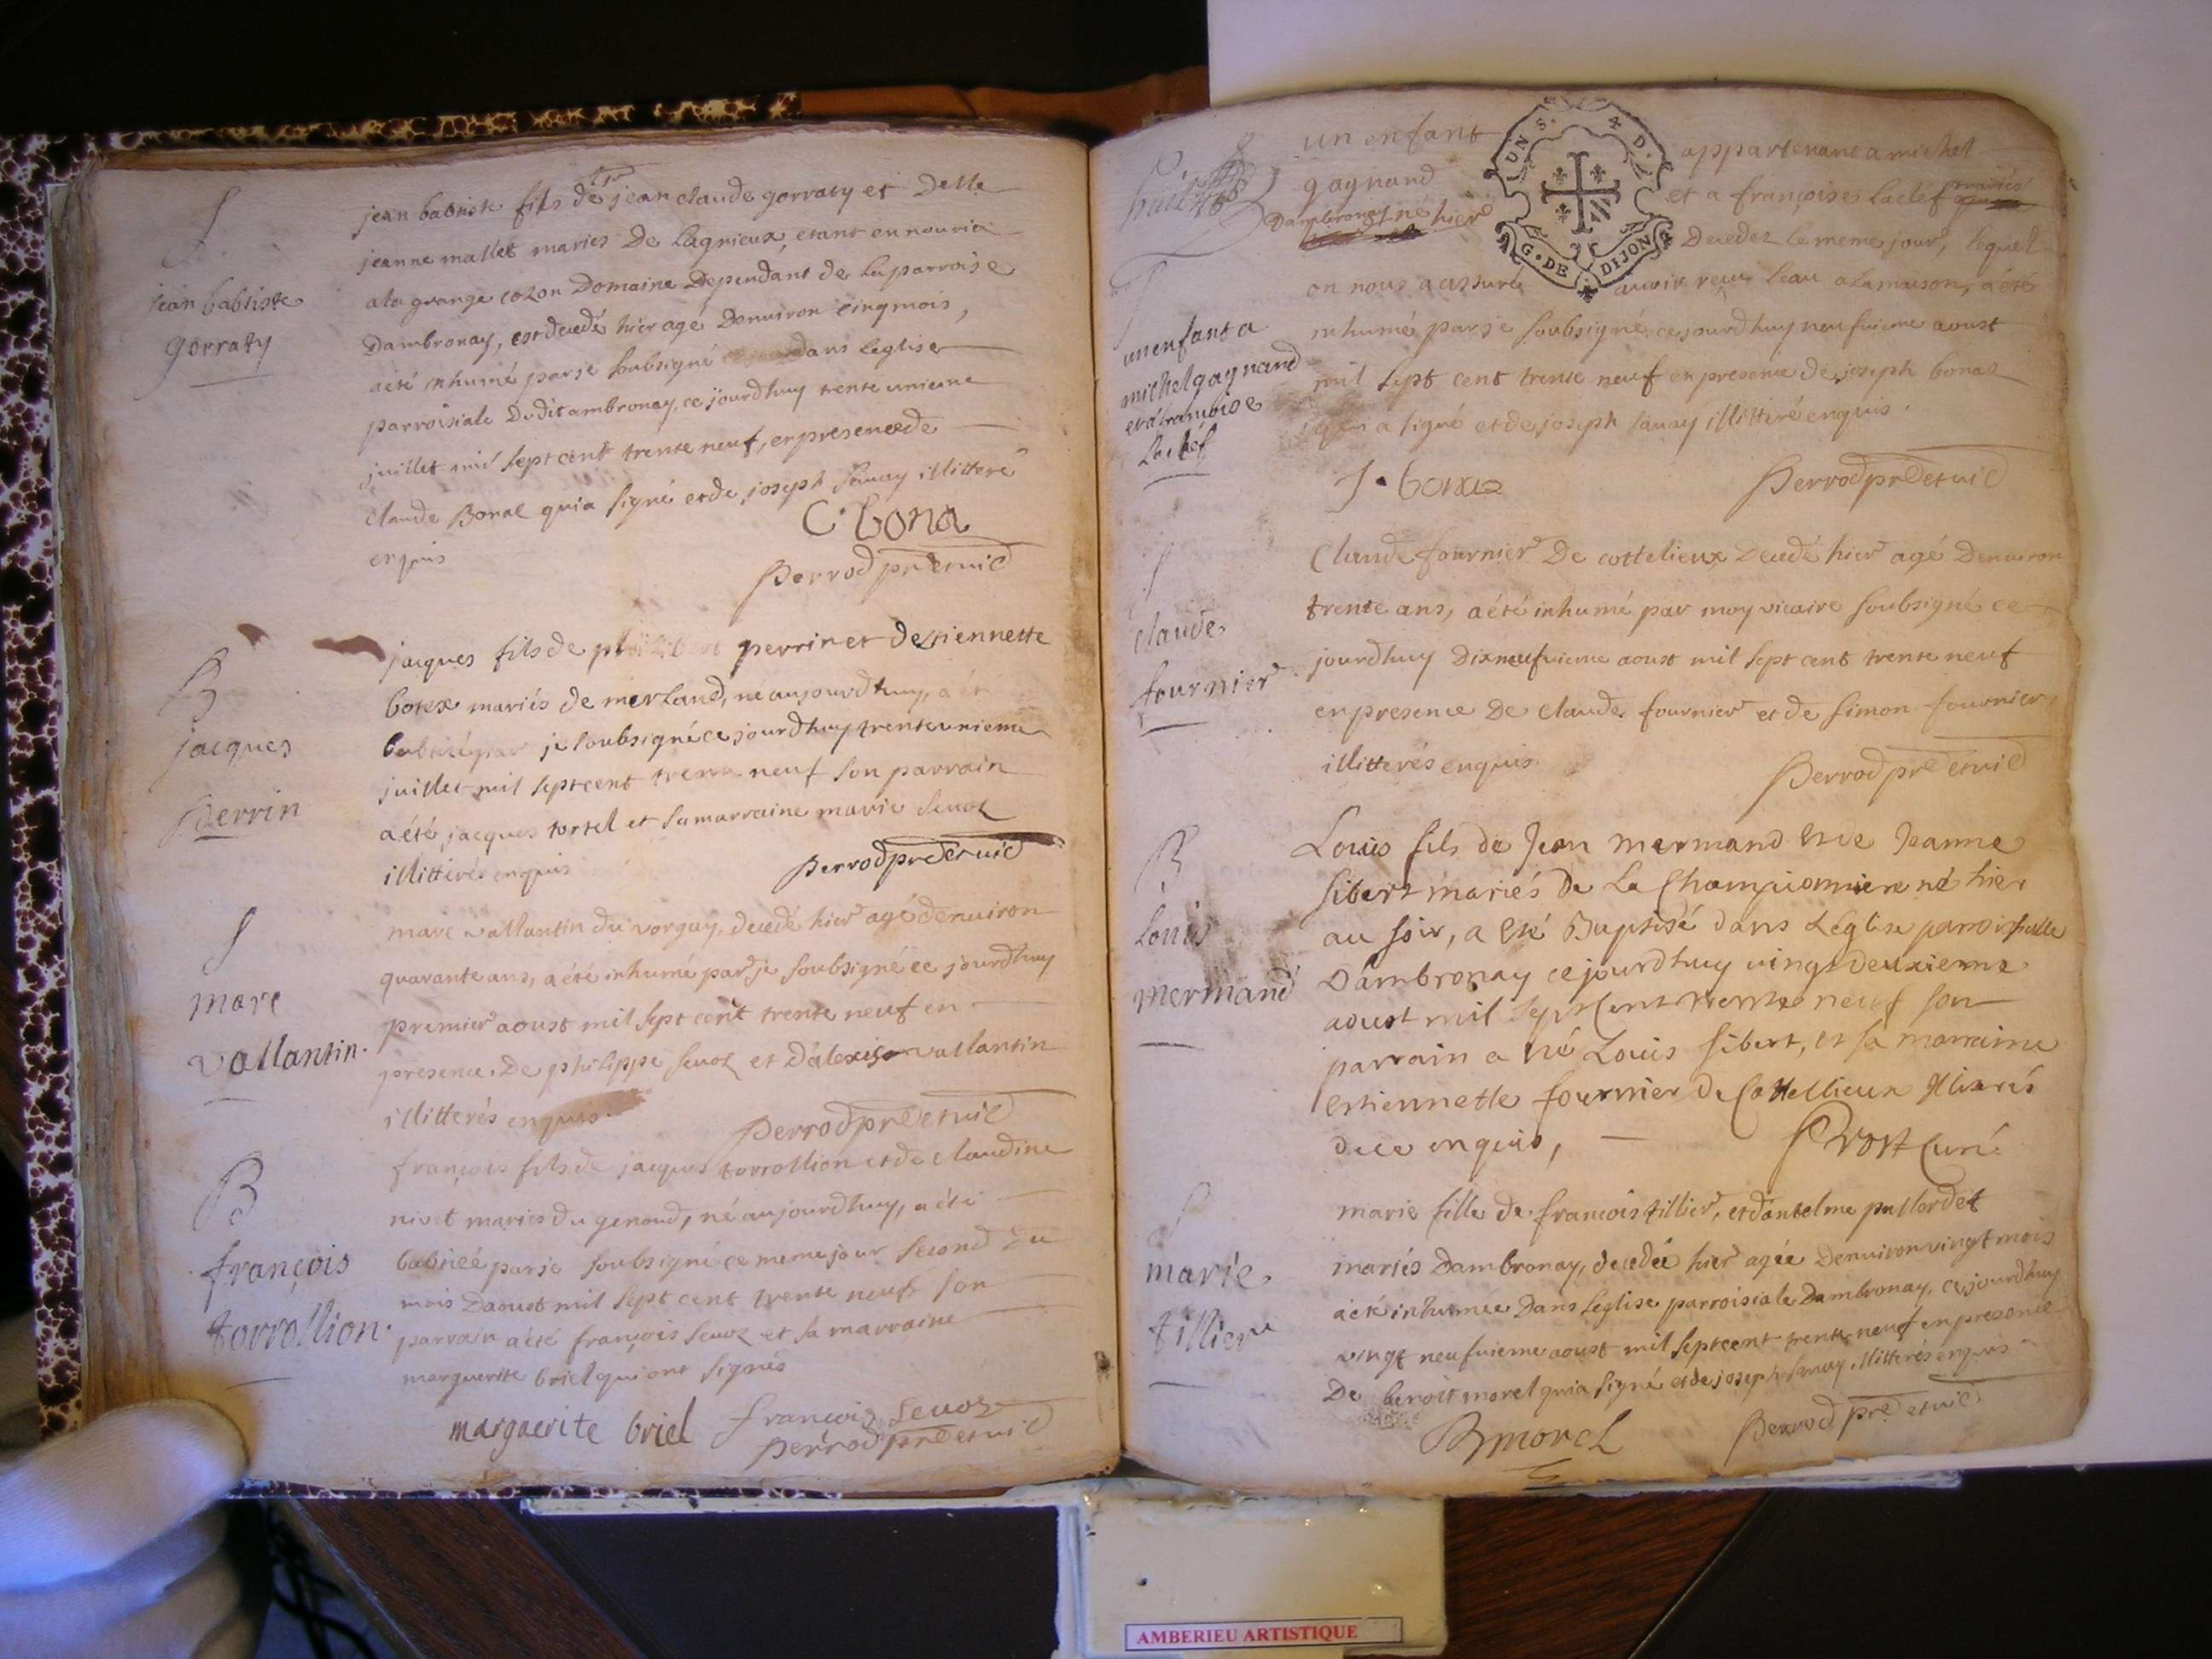 S
jean babtiste
gorraty
jean babtiste fils de sr jean claude gorraty et Delle
jeanne mallet mariés De Lagnieux, etant en nourice
a la grange cozon Domaine Dependant de la parroise
Dambronay, est decedé hier agé Denuiron cinq mois,
a été inhumé par je soubsigné dans leglise
parroisiale Dudit ambronay, ce jourdhuy trente unieme
juillet mil sept cent trente neuf, en presence de
claude Bonaz qui a signé et de joseph sauay illitteré
enquis
C. bona
Perrod pre et vic
B
jacques
Perrin
jacques fils de philibert perrin et Destiennette
botex mariés de merland, né aujourdhuy, a été
babtizé par je soubsigné ce jourdhuy trente unieme
juillet mil sept cent trente neuf son parrain
a été jacques tortel et sa marraine marie seuoz
illitterés enquis
Perrod pre et vic
S
marc
vallantin.
marc vallantin du vorgay, decedé hier agé denuiron
quarante ans, a été inhumé par je soubsigné ce jourdhuy
premier aoust mil sept cent trente neuf en
presence De philippe seuoz et d'alexis vallantin
illitterés enquis.
Perrod pre et vic
B
françois
torrollion.
françois fils de jacques torrollion et de claudine
nivet mariés du genoud, né aujourdhuy, a été
babtizé par je soubsigné ce meme jour second du
mois Daoust mil sept cent trente neuf son
parrain a été françois seuoz et sa marraine
marguerite briel qui ont signés
marguerite briel françois seuoz
Perrod pre et vic
huit
S
un enfant a
michel gagnand
et a francoise
Laclef
un enfant appartenant a michel
gagnand et a françoise Laclef mariés
Dambronay né hier Decedez le meme jour, lequel
on nous a assuré auoir reçu leau a la maison, a été
inhumé par je soubsigné ce jourdhuy neufuieme aoust
mil sept cent trente neuf en presence de joseph bonaz
qui a signé et de joseph sauay illitteré enquis.
J. bonaz Perrod pre et vic
UNS. 4 D.
G. DE DIJON
S
claude
fournier
Claude fournier De cottelieux Decedé hier agé Denuiron
trente ans, a été inhumé par moy vicaire soubsigné ce
jourdhuy Dixneufuieme aoust mil sept cent trente neuf
en presence De claude fournier et de simon fournier
illitterés enquis
Perrod pre et vic
B
Louis
mermand
Louis fils de Jean mermand et de Jeanne
sibert mariés De La Championniere né hier
au soir, a eté Baptisé dans L'eglise parroissialle
Dambronay ce jourdhuy vingt deuxieme
aoust mil sept cent trente neuf son
parrain a été Louis sibert, et sa marraine
estiennette fournier De Cottellieux illiterés
de ce enquis,
Prost Curé
S
marie
tillier
marie fille de francois tillier, et dantelme pallordet
mariés Dambronay, decedée hier agée Denuiron vingt mois
a été inhumée Dans leglise parroisiale Dambronay, ce jourdhuy
vingt neufuieme aoust mil sept cent trente neuf en presence
De benoit morel qui a signé et de joseph sauay illitterés enquis
B morel Perrod pre et vic
AMBERIEU ARTISTIQUE